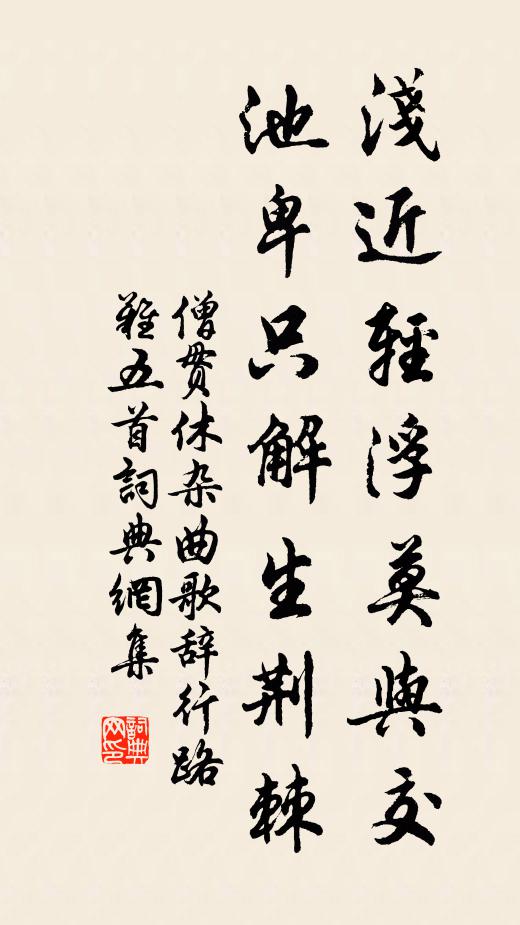 淺近輕浮莫與交
池卑只解生荆棘
僧貫休杂曲歌辞行路
難五首詞典網集
詞典
网印